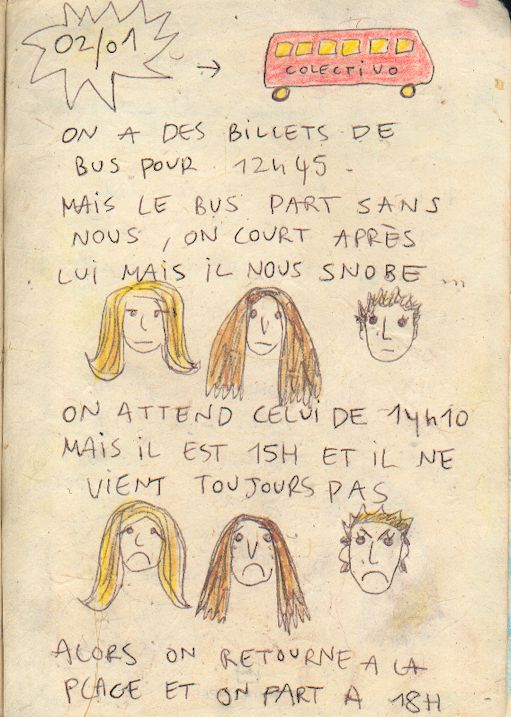 02/01
COLECTIVO
ON A DES BILLETS DE
BUS POUR 12H45.
MAIS LE BUS PART SANS
NOUS, ON COURT APRÈS
LUI MAIS IL NOUS SNOBE...
ON ATTEND CELUI DE 14H10
MAIS IL EST 15H ET IL NE
VIENT TOUJOURS PAS
ALORS ON RETOURNE A LA
PLAGE ET ON PART A 18H